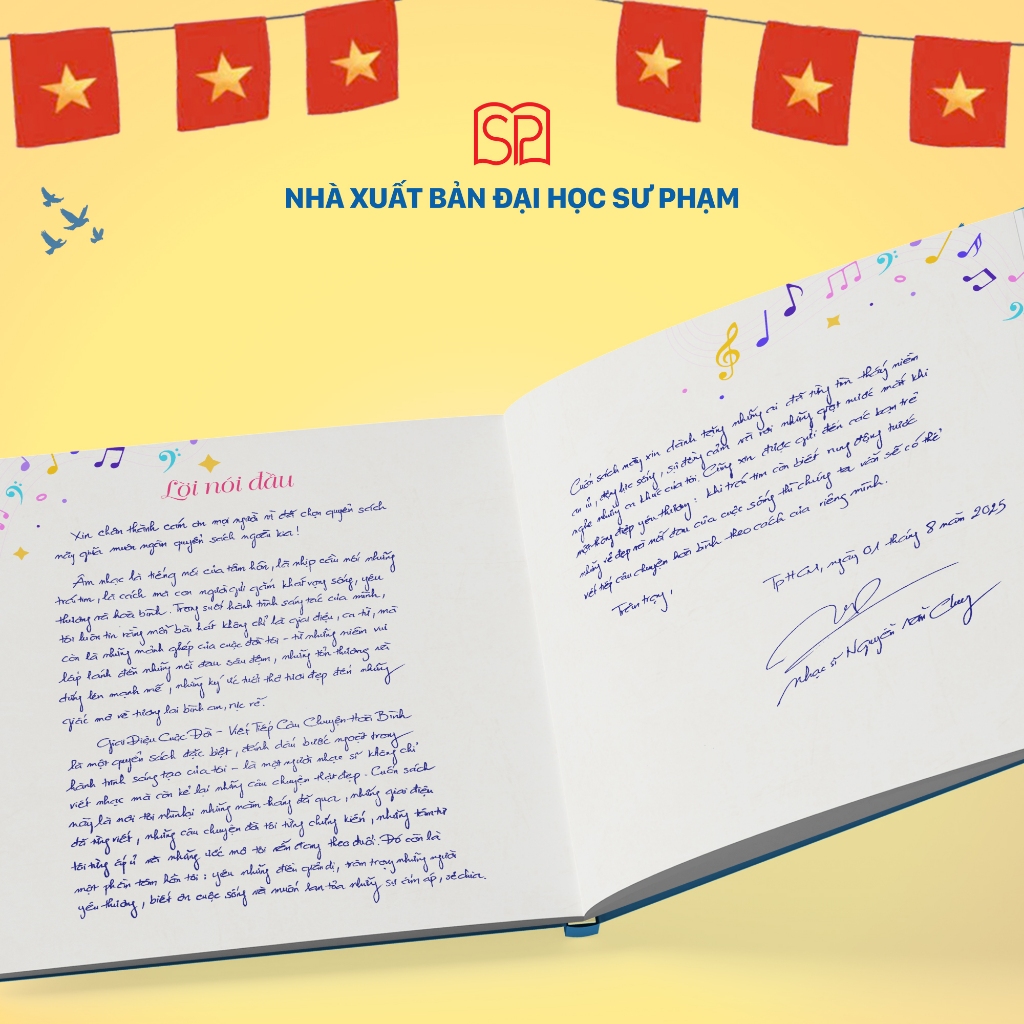 SP
NHÀ XUẤT BẢN ĐẠI HỌC SƯ PHẠM
Lời nói đầu
Xin chân thành cảm ơn mọi người vì đã chọn quyển sách
này giữa muôn ngàn quyển sách ngoài kia!
Âm nhạc là tiếng nói của tâm hồn, là nhịp cầu nối những
trái tim, là cách mà con người gửi gắm khát vọng sống, yêu
thương và hoà bình. Trong suốt hành trình sáng tác của mình,
tôi luôn tin rằng mỗi bài hát không chỉ là giai điệu, ca từ, mà
còn là những mảnh ghép của cuộc đời tôi - từ những niềm vui
lấp lánh đến những nỗi đau sâu đậm, những tổn thương rồi
đứng lên mạnh mẽ, những ký ức tuổi thơ tươi đẹp đến những
giấc mơ về tương lai bình an, rực rỡ.
Giai Điệu Cuộc Đời - Viết Tiếp Câu Chuyện Hoà Bình
là một quyển sách đặc biệt, đánh dấu bước ngoặt trong
hành trình sáng tạo của tôi - là một người nhạc sĩ không chỉ
viết nhạc mà còn kể lại những câu chuyện thật đẹp. Cuốn sách
này là nơi tôi nhìn lại những năm tháng đã qua, những giai điệu
đã từng viết, những câu chuyện đời tôi từng chứng kiến, những tâm tư
tôi từng ấp ủ và những ước mơ tôi vẫn đang theo đuổi. Đó còn là
một phần tâm hồn tôi: yêu những điều giản dị, trân trọng những người
yêu thương, biết ơn cuộc sống và muốn lan tỏa những sự ấm áp, sẻ chia.
Cuốn sách này xin dành tặng những ai đã từng tìm thấy niềm
an ủi, động lực sống, sự đồng cảm và rơi những giọt nước mắt khi
nghe những ca khúc của tôi. Cũng xin được gửi đến các bạn trẻ
một thông điệp yêu thương: khi trái tim còn biết rung động trước
những vẻ đẹp và nỗi đau của cuộc sống thì chúng ta vẫn sẽ có thể
viết tiếp câu chuyện hoà bình theo cách của riêng mình.
Trân trọng,
TpHCM, ngày 01 tháng 8 năm 2025
Nhạc sĩ Nguyễn Văn Chung